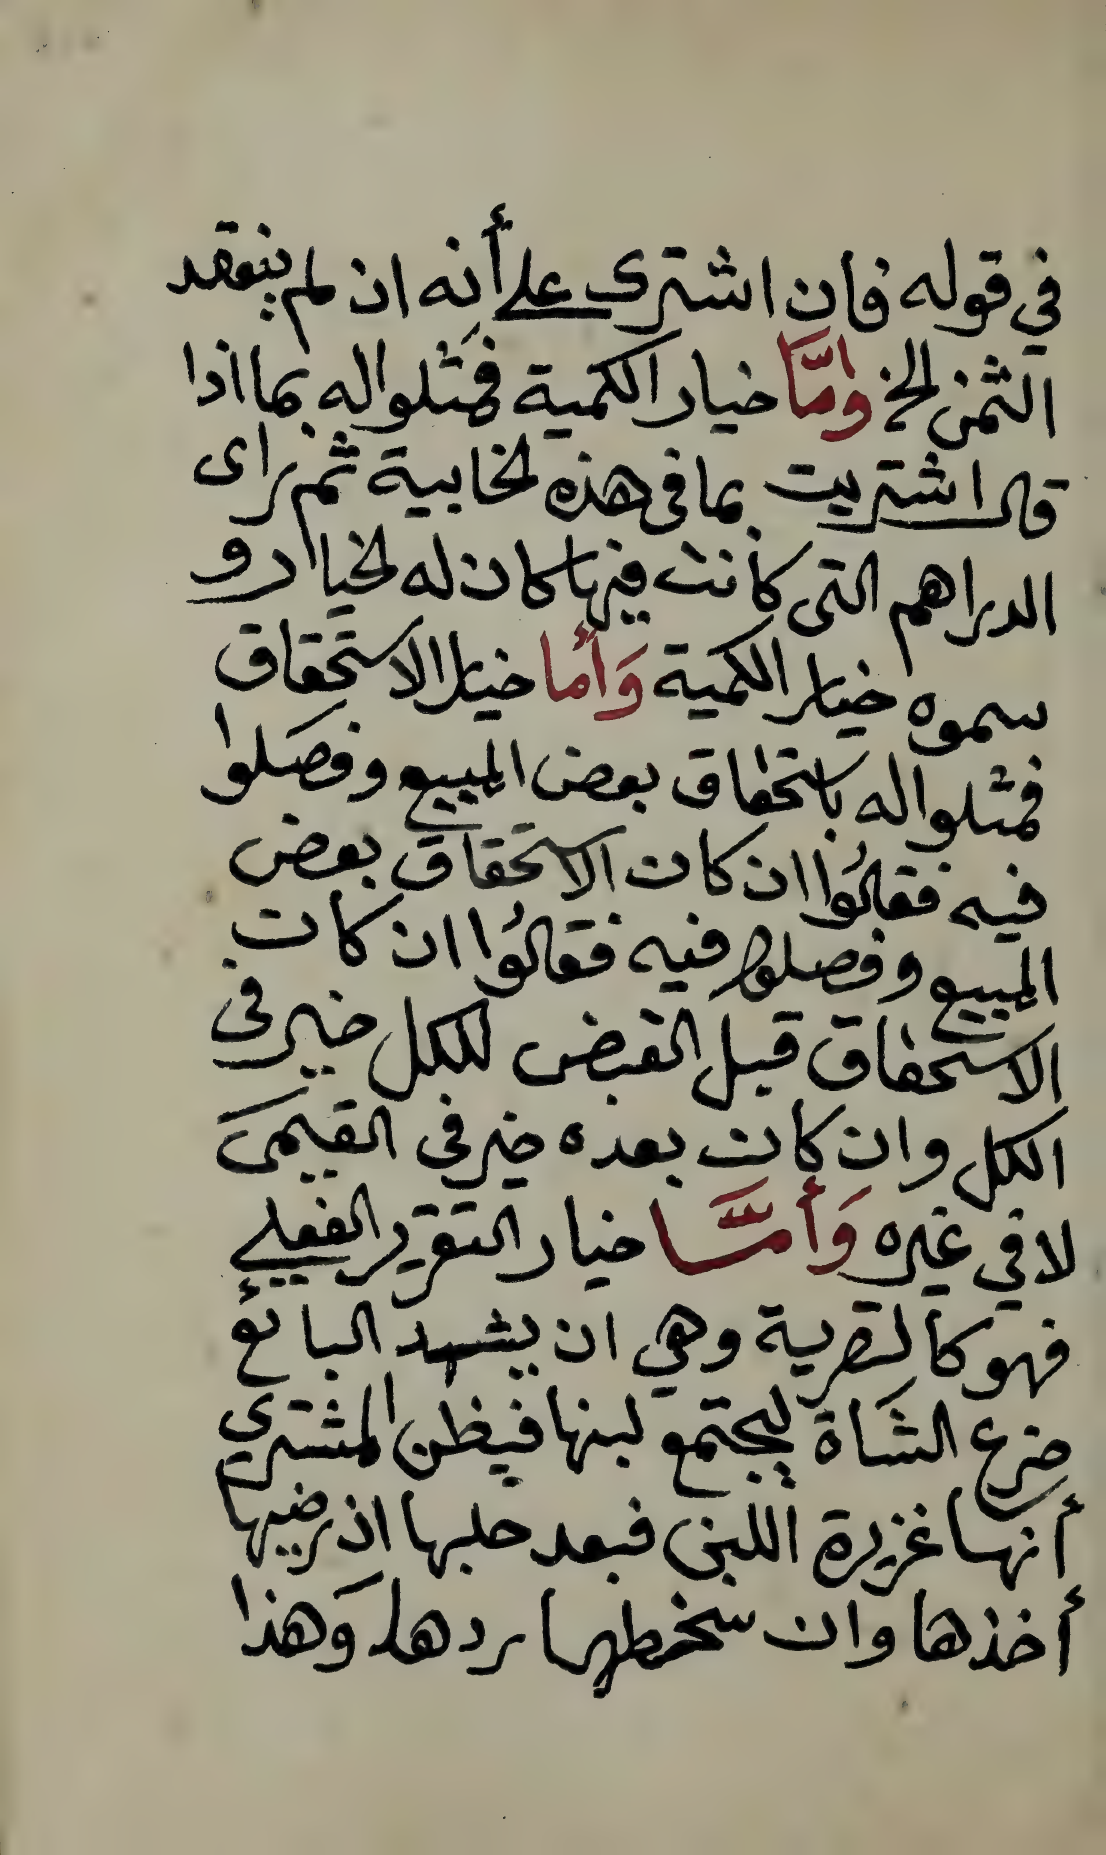 في قوله فان اشترى على أنه ان لم ينقد
الثمن الخ وامّا خيار الكمية فمثلوا له بما اذا
قال اشتريت بما في هذه الخابية ثم راى
الدراهم التى كانت فيها كان له الخيار و
سموه خيار الكمية وَأما خيار الاستحقاق
فمثلوا له باستحقاق بعض المبيع وفصَلوا
فيه فقالُوا ان كان الاستحقاق بعض
المبيع وفصلوا فيه فقالُوا ان كان
الاستحقاق قبل القبض للكل خير في
الكل وان كان بعده خير في القيمى
لا في غيره وَأمَّا خيار التغرير الفعلي
فهو كالتصرية وهي ان يشد البائع
ضرع الشاة ليجتمع لبنها فيظن المشتري
أنها غزيرة اللبن فبعد حلبها اذ رضيها
أخذها وان سخطها ردها وَهذا